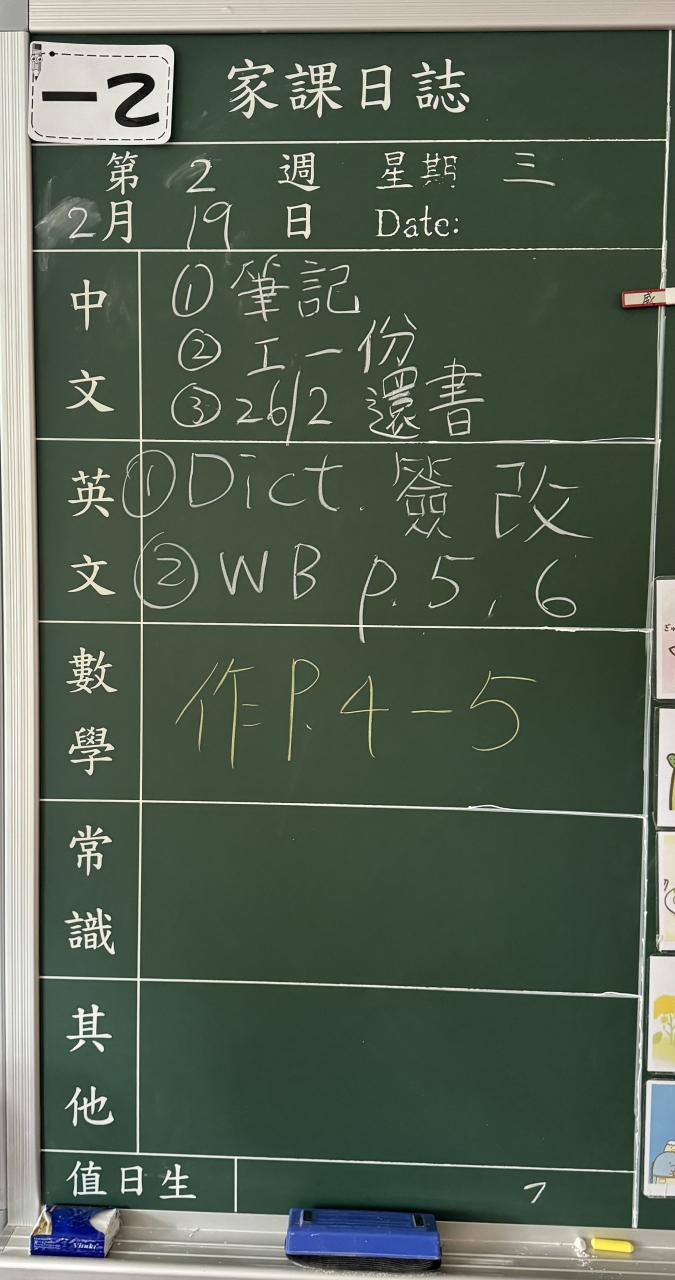 一乙
家課日誌
第 2 週 星期 三
2月 19 日 Date:
中文
① 筆記
② 工一份
③ 26/2 還書
英文
① Dict. 簽改
② WB p.5,6
數學
作P.4-5
常識
其他
值日生
Vinda